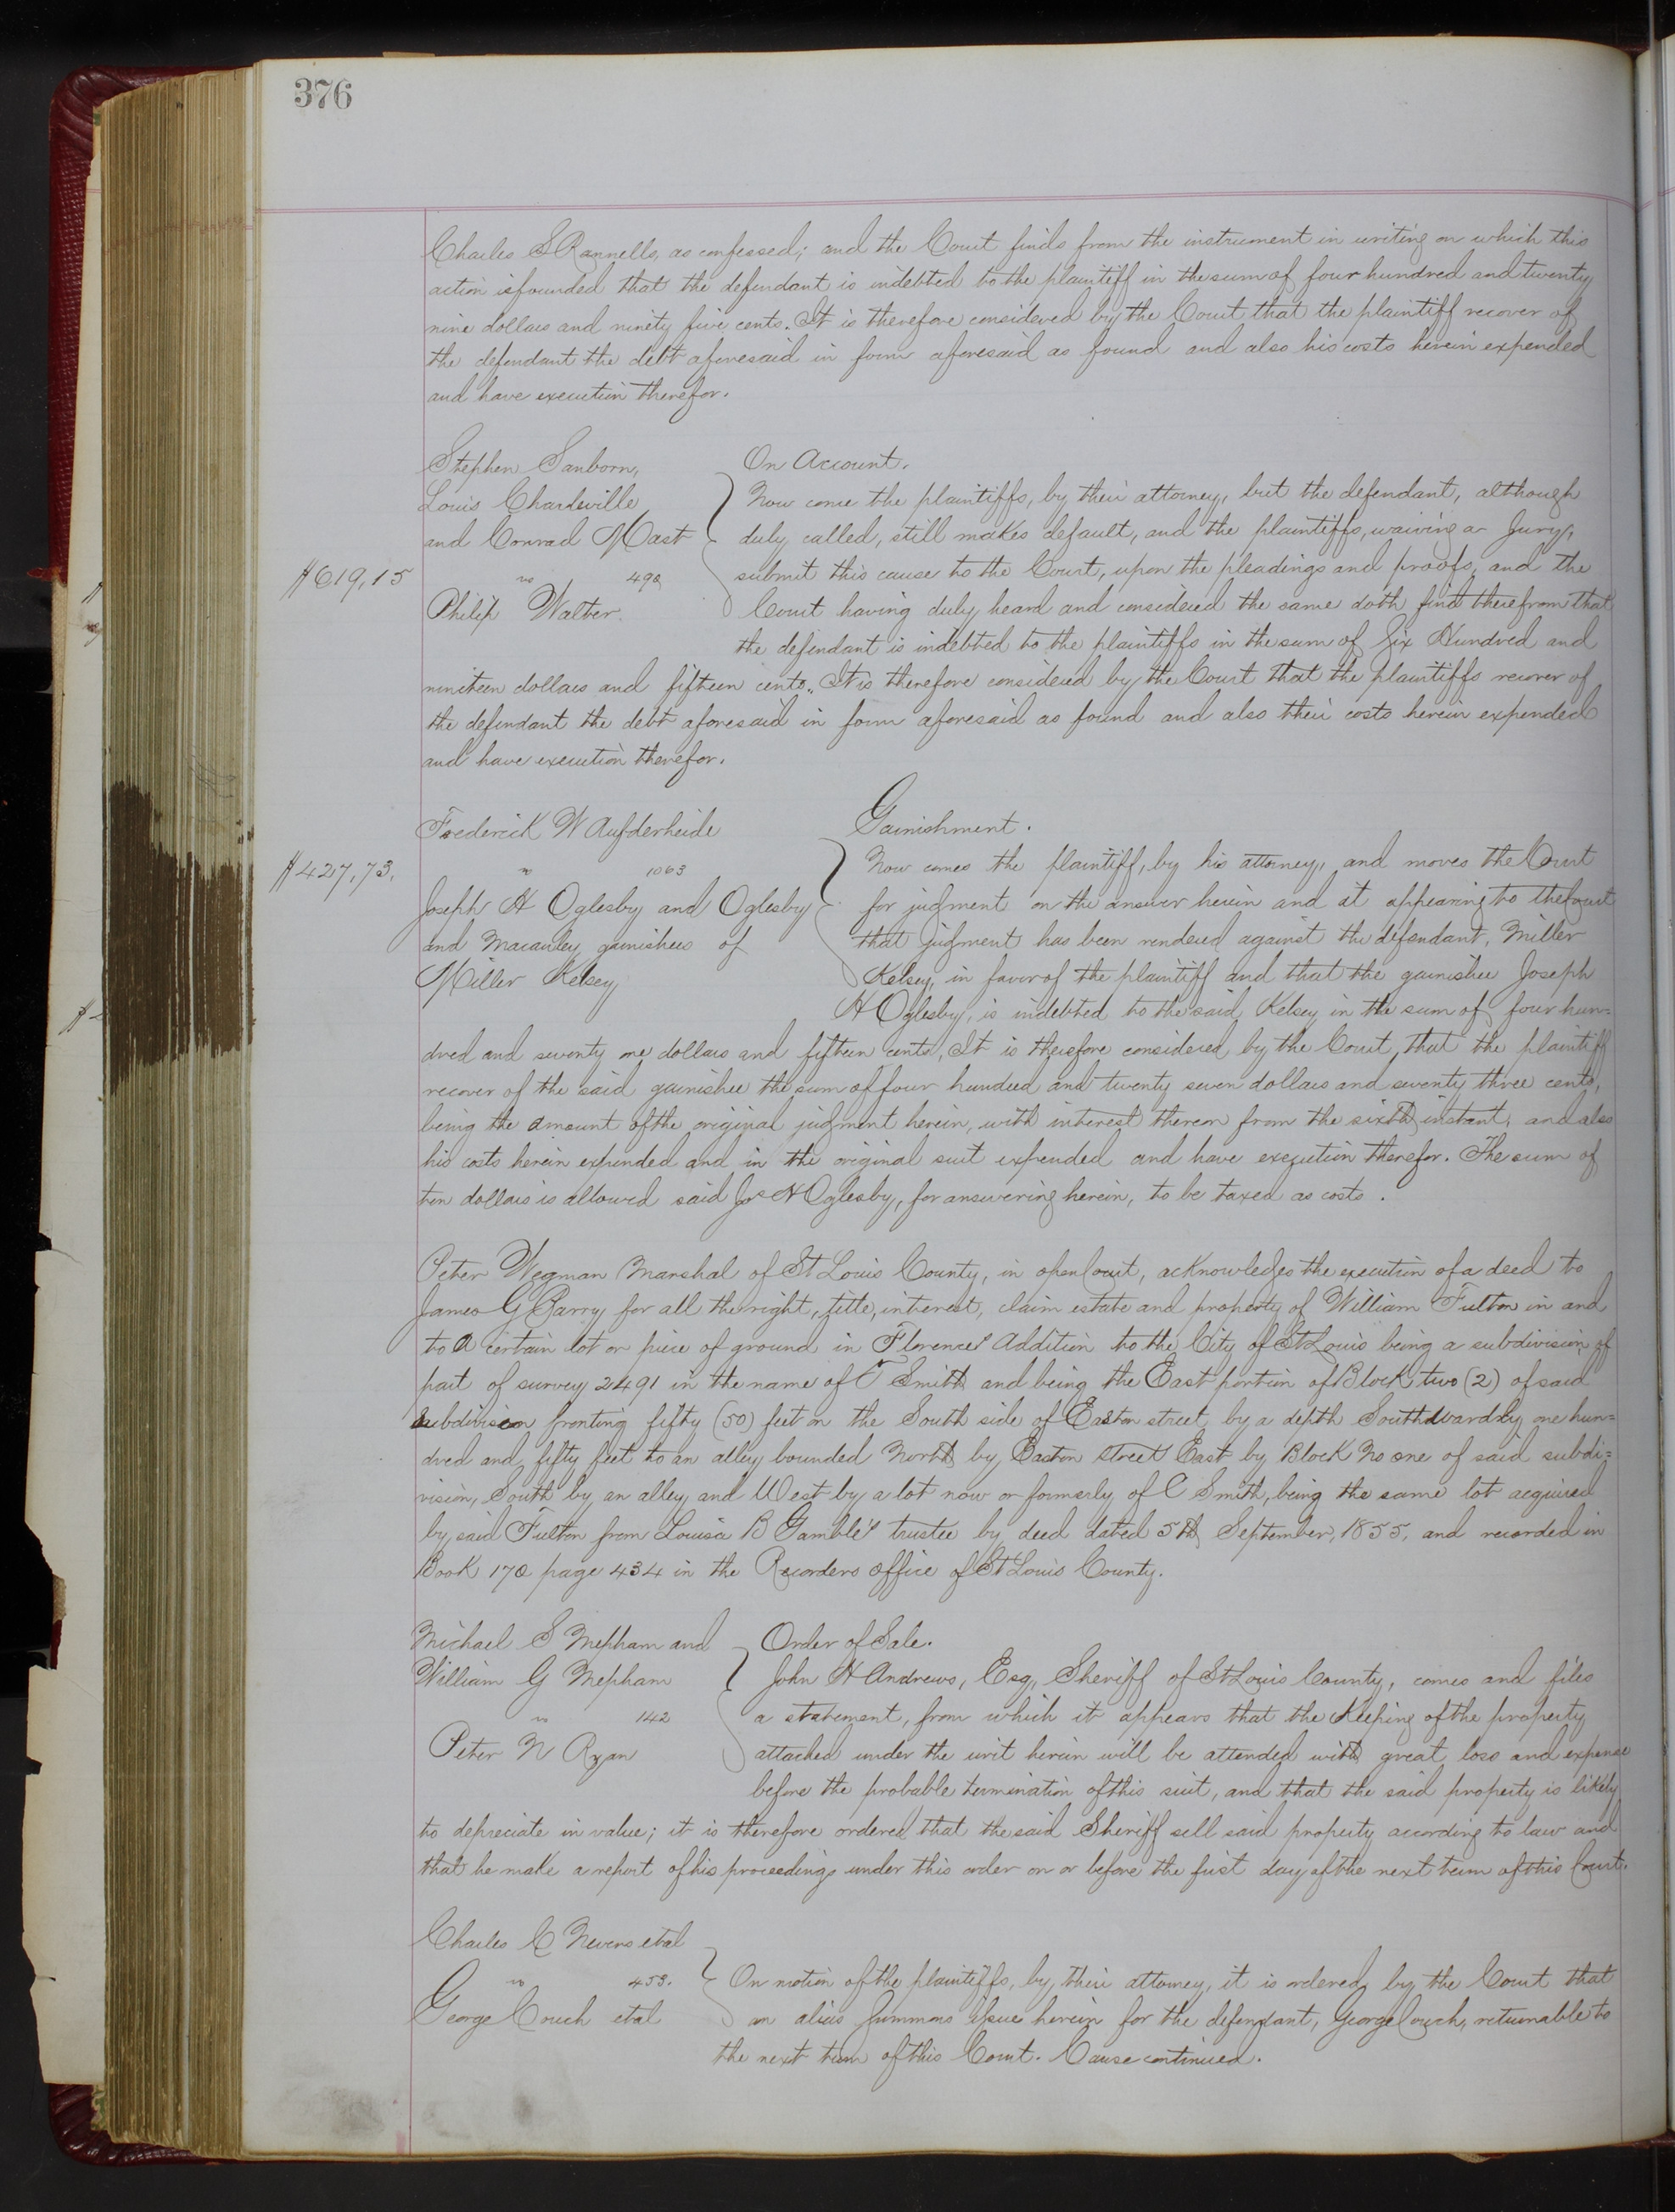 376
Charles S Rannells, as confessed; and the Court finds from the instrument in writing on which this
action is founded that the defendant is indebted to the plaintiff in the sum of four hundred and twenty
nine dollars and ninety five cents. It is therefore considered by the Court that the plaintiff recover of
the defendant the debt aforesaid in form aforesaid as found and also his costs herein expended
and have execution therefor.
Stephen Sanborn,
Louis Chardeville
and Conrad Mast
$619,15
vs 490
Philip Walter.
On Account.
Now come the plaintiffs, by their attorney, but the defendant, although
duly called, still makes default, and the plaintiffs, waiving a Jury,
submit this cause to the Court, upon the pleadings and proofs, and the
Court having duly heard and considered the same doth find therefrom that
the defendant is indebted to the plaintiffs in the sum of Six Hundred and
nineteen dollars and fifteen cents. It is therefore considered by the Court that the plaintiffs recover of
the defendant the debt aforesaid in form aforesaid as found and also their costs herein expended
and have execution therefor.
Frederick W Aufderheide
$427,73.
vs 1063
Joseph H Oglesby and Oglesby
and Macauley garnishees of
Miller Kelsey
Garnishment.
Now comes the plaintiff, by his attorney, and moves the Court
for judgment on the answer herein and it appearing to the Court
that judgment has been rendered against the defendant, Miller
Kelsey, in favor of the plaintiff and that the garnishee Joseph
H Oglesby, is indebted to the said Kelsey in the sum of four hun=
dred and seventy one dollars and fifteen cents, It is therefore considered by the Court, that the plaintiff
recover of the said garnishee the sum of four hundred and twenty seven dollars and seventy three cents,
being the amount of the original judgment herein, with interest thereon from the sixth instant, and also
his costs herein expended and in the original suit expended and have execution therefor. The sum of
ten dollars is allowed said Jos H Oglesby, for answering herein, to be taxed as costs.
Peter Wegman Marshal of St Louis County, in open Court, acknowledges the execution of a deed to
James G Barry for all the right, title, interest, claim estate and property of William Fulton in and
to a certain lot or piece of ground in Florence Addition to the City of St Louis being a subdivision of
part of survey 2491 in the name of T Smith and being the East portion of Block two (2) of said
subdivision fronting fifty (50) feet on the South side of Easton street by a depth Southwardly one hun=
dred and fifty feet to an alley bounded North by Easton street East by Block No one of said subdi=
vision, South by an alley and West by a lot now or formerly of C Smith, being the same lot acquired
by said Fulton from Louisa B Gamble's trustee by deed dated 5th September, 1855, and recorded in
Book 170 page 434 in the Recorders office of St Louis County.
Michael S Mepham and
William G Mepham
vs 142
Peter N Ryan
Order of Sale.
John H Andrews, Esq, Sheriff of St Louis County, comes and files
a statement, from which it appears that the keeping of the property
attached under the writ herein will be attended with great loss and expense
before the probable termination of this suit, and that the said property is likely
to depreciate in value; it is therefore ordered that the said Sheriff sell said property according to law and
that he make a report of his proceedings under this order on or before the first day of the next term of this Court.
Charles C Nevers et al
vs 453.
George Couch et al
On motion of the plaintiffs, by their attorney, it is ordered by the Court that
an alias Summons issue herein for the defendant, George Couch, returnable to
the next term of this Court. Cause continued.